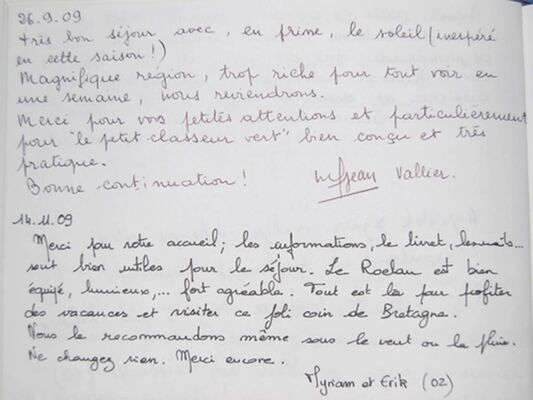 26.9.09
très bon séjour avec, en prime, le soleil (inespéré
en cette saison!)
Magnifique région, trop riche pour tout voir en
une semaine, nous reviendrons.
Merci pour vos petites attentions et particulièrement
pour "le petit classeur vert" bien conçu et très
pratique.
Bonne continuation! Jean Vallier.
14.11.09
Merci pour votre accueil; les informations, le livret, les mails...
sont bien utiles pour le séjour. Le Roelan est bien
équipé, lumineux,... fort agréable. Tout est là pour profiter
des vacances et visiter ce joli coin de Bretagne.
Nous le recommandons même sous le vent ou la pluie.
Ne changez rien. Merci encore.
Myriam et Erik (02)